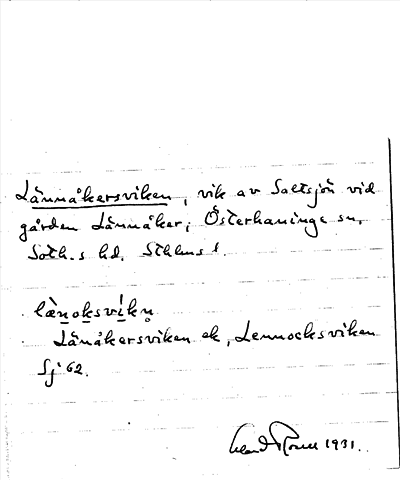 Lännåkersviken, vik av Saltsjön vid
gården Lännåker, Österhaninge sn,
Soth.s hd. Sthlms l.
lænoksvikn̥
Länåkersviken ek, Lennocksviken
Sj 62.
1931.